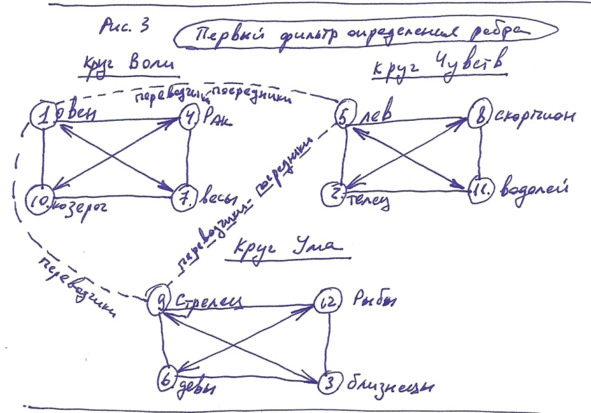 Рис. 3
Первый фильтр определения ребра
Круг Воли
Круг Чувств
переводчики посредники
1 овен
4 Рак
5 лев
8 скорпион
10. козерог
7. весы
2. телец
11. водолей
переводчики посредники
Круг Ума
переводчики
9 Стрелец
12 Рыбы
6 девы
3 близнецы